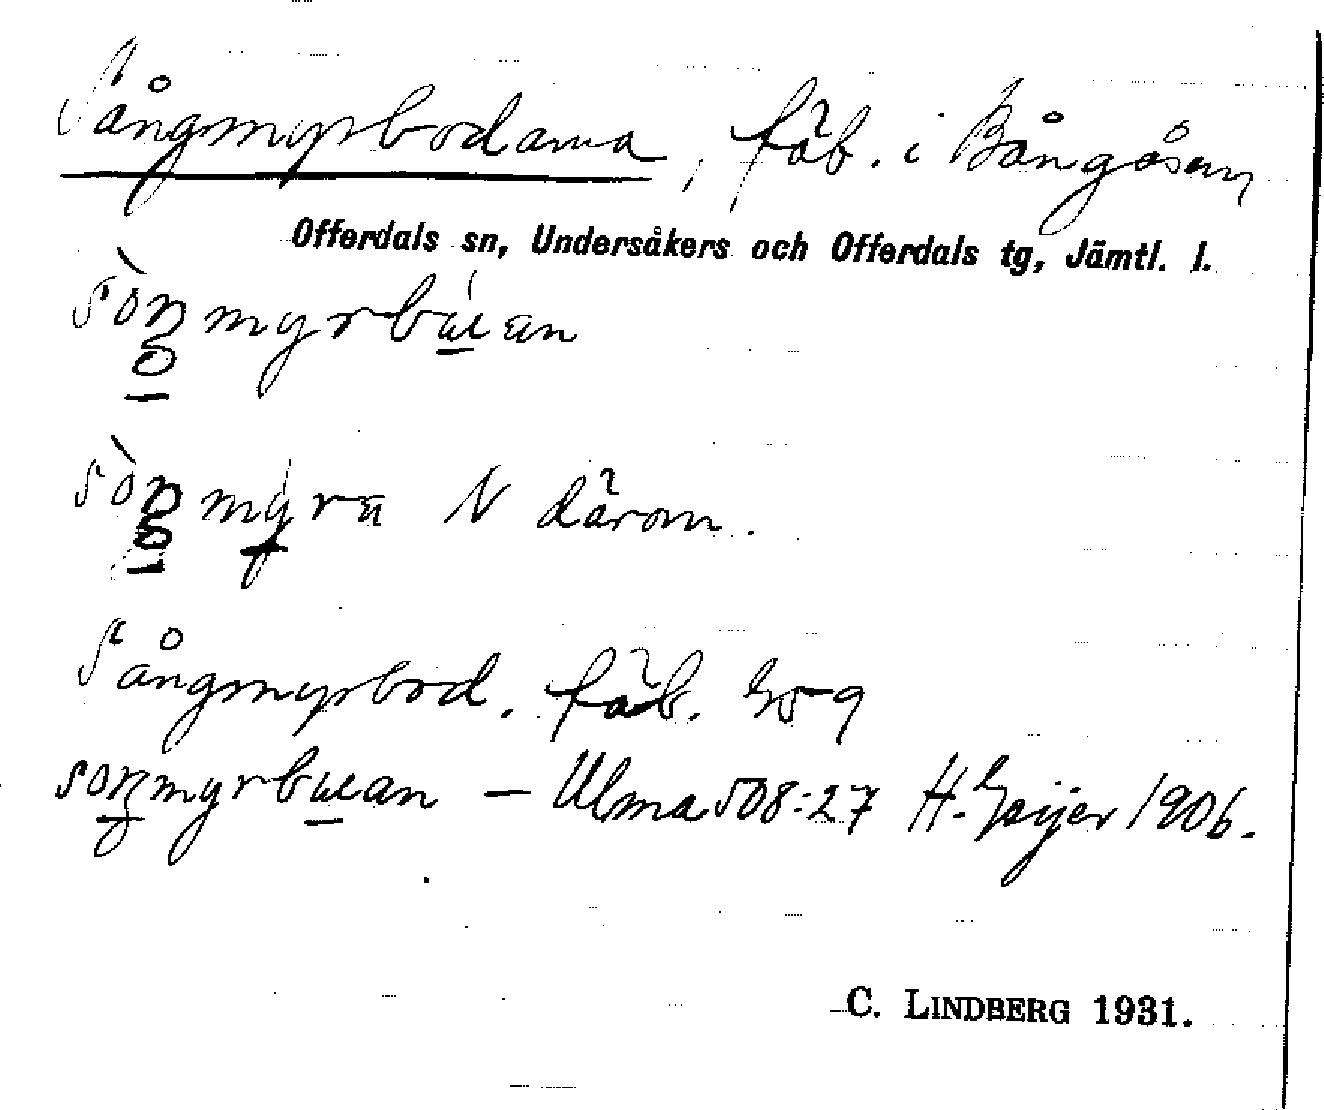 Sångmyrbodarna, fäb. i Bångåsen
Offerdals sn, Undersåkers och Offerdals tg, Jämtl. l.
sòŋmyrbúan
sòŋmýra N därom.
Sångmyrbod. fäb. G59
soŋmyrbuan – Ulma 508:27 H. Geijer 1906.
C. LINDBERG 1931.